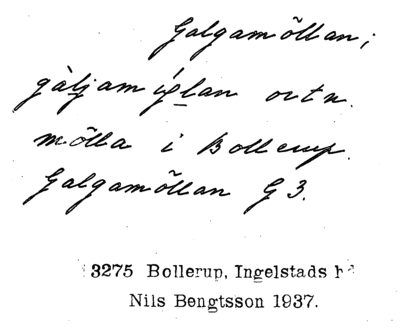 Galgamõllan;
gàljamíglan ortn.
mõlla i Bollerup.
Galgamõllan G3.
3275 Bollerup, Ingelstads hd
Nils Bengtsson 1937.